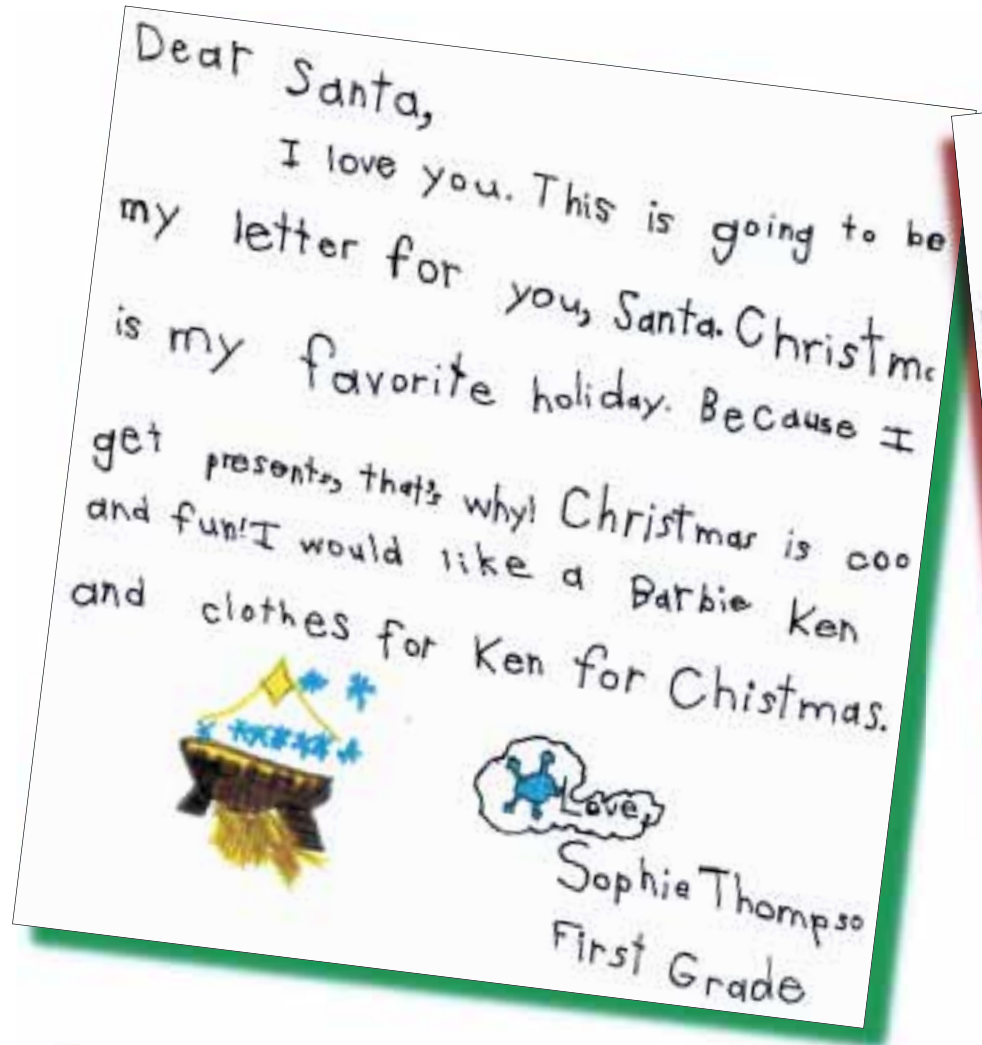 Dear Santa,
I love you. This is going to be
my letter for you, Santa. Christm
is my favorite holiday. Because I
get presents, that's why! Christmas is coo
and fun! I would like a Barbie Ken
and clothes for Ken for Chistmas.
Love,
Sophie Thompso
First Grade